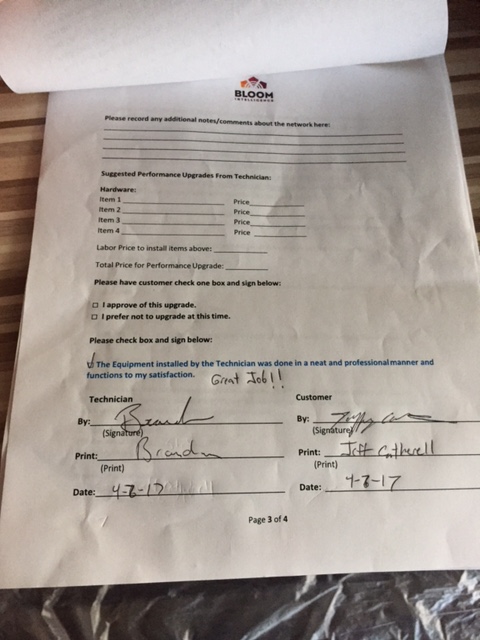 BLOOM
INTELLIGENCE
Please record any additional notes/comments about the network here:
Suggested Performance Upgrades From Technician:
Hardware:
Item 1 Price
Item 2 Price
Item 3 Price
Item 4 Price
Labor Price to install items above:
Total Price for Performance Upgrade:
Please have customer check one box and sign below:
I approve of this upgrade.
I prefer not to upgrade at this time.
Please check box and sign below:
The Equipment installed by the Technician was done in a neat and professional manner and
functions to my satisfaction. Great Job!!
Technician Customer
By: By:
(Signature) (Signature)
Print: Brandon Print: Jeff
(Print) (Print)
Date: Date:
Page 3 of 4